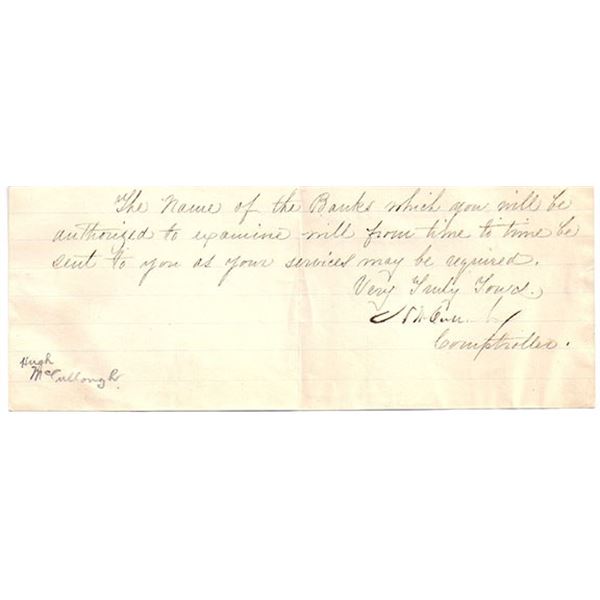 The Name of the Banks which you will be
authorized to examine will from time to time be
sent to you as your services may be required.
Very Truly Yours.
Comptroller.
Hugh
McCullough.